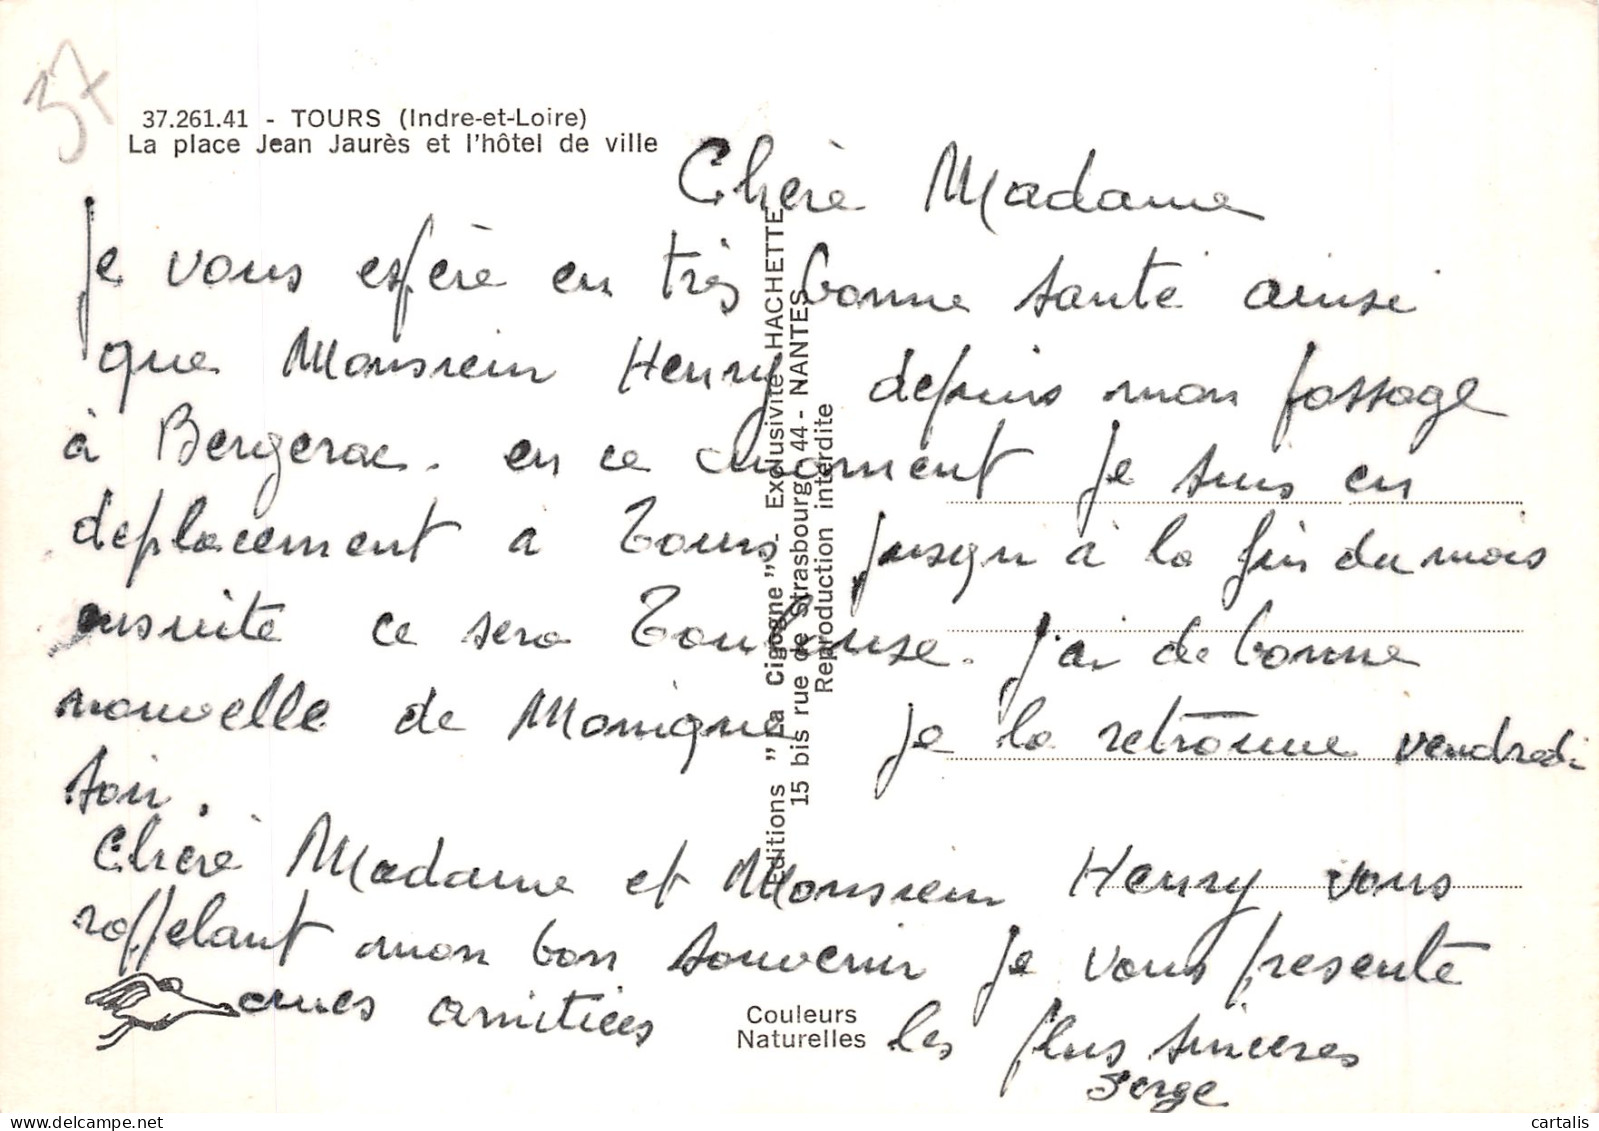 37
37.261.41 - TOURS (Indre-et-Loire)
La place Jean Jaurès et l'hôtel de ville
Chère Madame
Je vous espère en très bonne santé ainsi
que Monsieur Henry depuis mon passage
à Bergerac. en ce moment je suis en
deplacement a Tours jusqu à la fin du mois
ensuite ce sera Toulouse. j'ai de bonne
nouvelle de Monique je la retrouve vendredi
soir.
Chère Madame et Monsieur Henry vous
rappelant mon bon souvenir je vous presente
mes amitiées les plus sinceres
Serge
Editions "La Cigogne" - Exclusivité HACHETTE
15 bis rue de Strasbourg 44 - NANTES
Reproduction interdite
Couleurs
Naturelles
cartalis